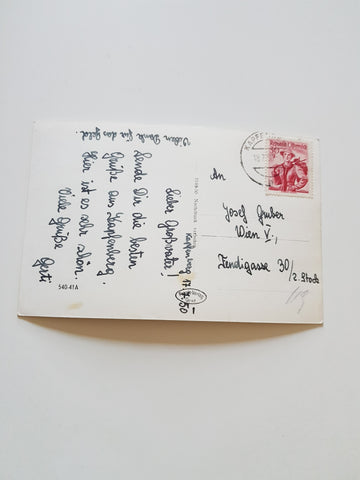 Kapfenberg 17.7.50
Lieber Großvater!
Sende Dir die besten
Grüße aus Kapfenberg.
Hier ist es sehr schön.
Viele Grüße
Gerti
Vielen Dank für das Geld.
540-41A
An
Josef Gruber
Wien V.,
Zentagasse 30/2. Stock